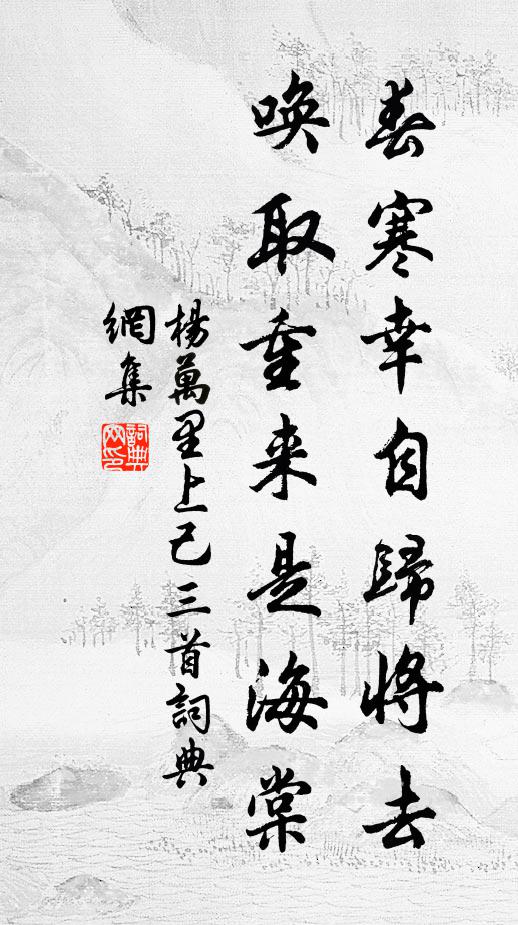 春寒幸自歸將去
喚取重来是海棠
楊萬里上己三首詞典
網集
詞典
网印